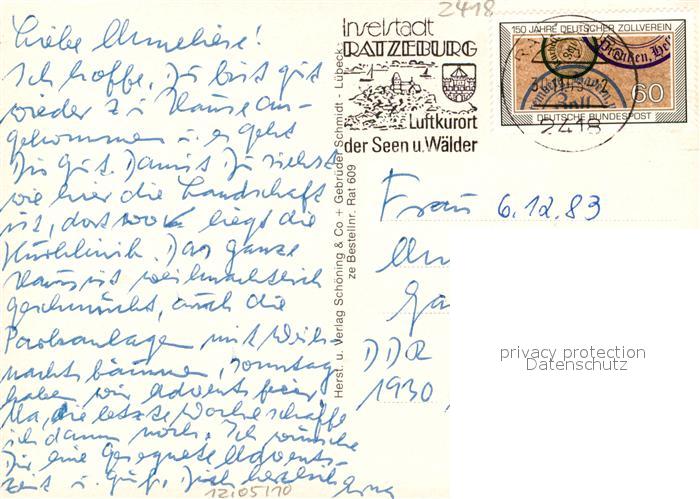 2418
Inselstadt
RATZEBURG
Luftkurort
der Seen u. Wälder
150 JAHRE DEUTSCHER ZOLLVEREIN
Zoll
60
DEUTSCHE BUNDESPOST
2418
Liebe Anneliese!
Ich hoffe, Du bist gut
wieder zu Hause an-
gekommen u. es geht
Dir gut. Damit Du siehst
wie hier die Landschaft
ist, dort wo liegt die
Kurklinik. Das ganze
Haus ist weihnachtlich
geschmückt, auch die
Parkanlagen mit Weih-
nachtsbäumen, sonntag
haben wir Adventsfeier.
Na, die letzte Woche schaffe
ich dann noch. Ich wünsche
Dir eine gesegnete Advents-
zeit u. grüß Dich herzlich Erna
12/05/10
Herst. u. Verlag Schöning & Co + Gebrüder Schmidt - Lübeck
ze Bestellnr. Rat 609
Frau 6.12.83
DDR
1930
privacy protection
Datenschutz